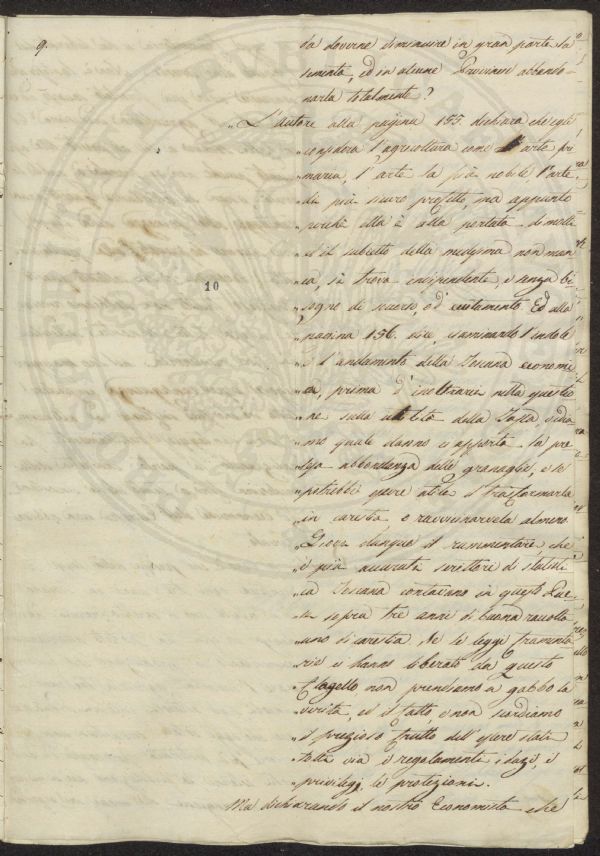 9.
da doverne diminuire in gran parte la
sementa, ed in alcune Provincie abbando-
narla totalmente?
„L'autore alla pagina 155. dichiara che egli
„considera l'agricoltura come l'arte pri
„maria, l'arte la più nobile, l'arte
„di più sicuro profitto, ma appunto
„perché ella è alla portata di molti
„ed il subietto della medesima non man
„ca, si trova indipendente, e senza bi
„sogno di scorso, ed eccitamento. Ed alla
„pagina 156. dice, esaminando l'indole
„e l'andamento della Toscana econom
„ca, prima d'inoltrarci nella questio
„ne sulla utilità della Tassa, vedia
„mo quale danno ci apporta la pre
„tesa abbondanza delle granaglie, e se
„potrebbe essere utile il trasformarla
„in carestia, o ravvicinarvela almeno.
„Giova dunque il rammentare, che
„i più accurati scrittori di statisti
„ca Toscana contavano in questo Pae-
„se sopra tre anni di buona raccolta
„uno di carestia. Se le leggi frumenta
„rie ci hanno liberato da questo
„flagello non prendiamo a gabbo la
„verità, ed il fatto, e non scordiamo
„il prezioso frutto dell'essere stati
„tolti via i regolamenti i dazi, i
„privilegi, le protezioni.
Ma dichiarando il nostro Economista che
10